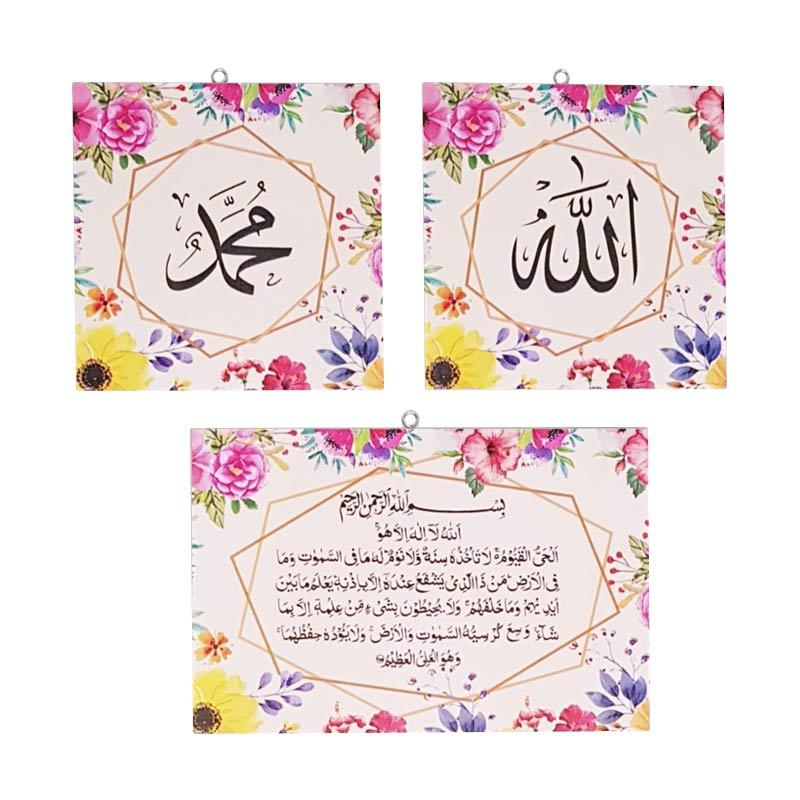 محمد
الله
بسم الله الرحمن الرحيم
الله لا اله الا هو
الحي القيوم لا تاخذه سنة ولا نوم له ما في السموت وما
في الارض من ذا الذي يشفع عنده الا باذنه يعلم ما بين
ايديهم وما خلفهم ولا يحيطون بشيء من علمه الا بما
شاء وسع كرسيه السموت والارض ولا يؤده حفظهما
وهو العلي العظيم